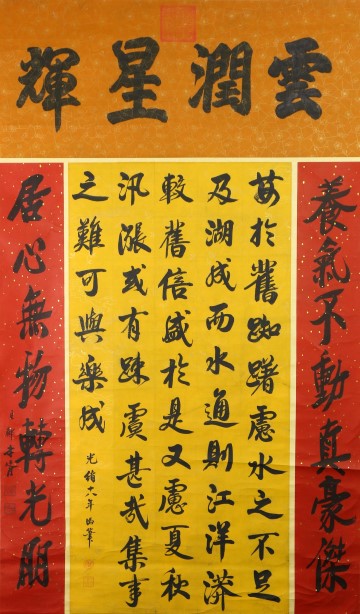 雲潤星輝
養氣不動真豪傑
每於舊踟躇慮水之不足
及湖成而水通則江洋漭
較舊倍盛於是又慮夏秋
汛漲或有疎虞甚哉集事
之難可與樂成
光緒十八年御筆
居心無物轉光明